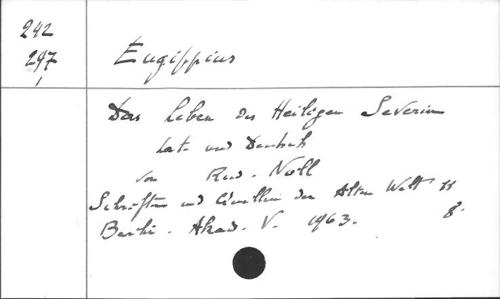 242
297
Eugippius
Das Leben des Heiligen Severin
Lat. und Deutsch
von Rud. Noll
Schriften und Quellen der Alten Welt 11
Berlin. Akad. V. 1963. 8°.